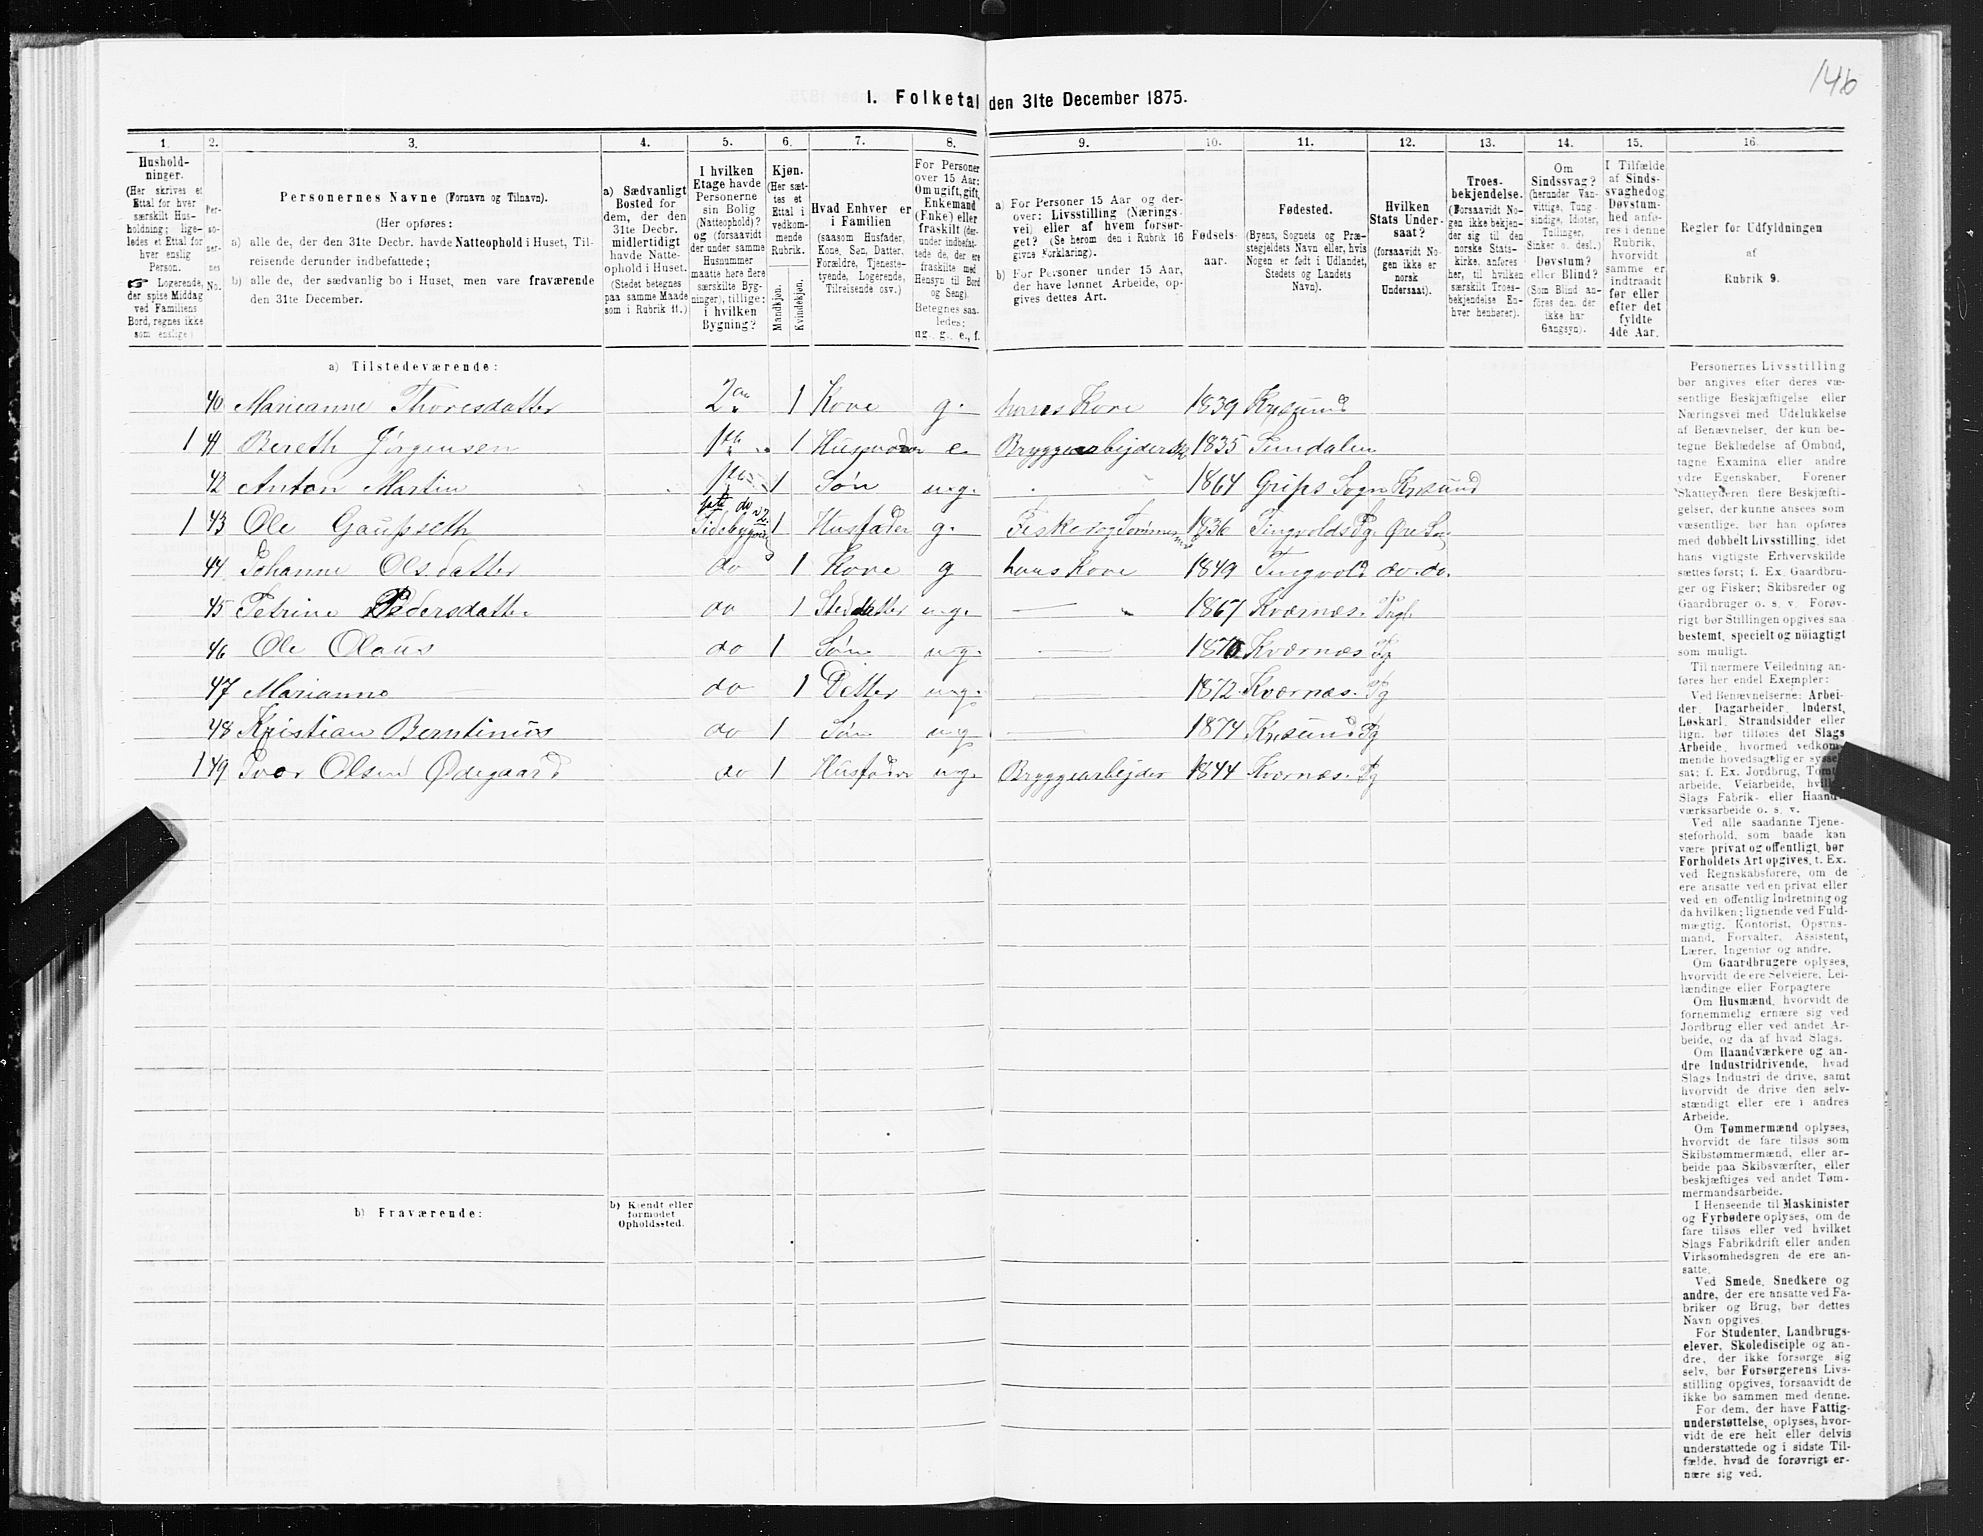 146
I. Folketal den 31te December 1875.
1. 2. 3. 4. 5. 6. 7. 8. 9. 10. 11. 12. 13. 14. 15. 16.
Hushold-
ninger.
(Her skrives et
Ettal for hver
særskilt Hus-
holdning; lige-
ledes et Ettal for
hver enslig
Person.
☞ Logerende,
der spise Middag
ved Familiens
Bord, regnes ikke
som enslige)
Per-
so-
ner-
nes
No.
Personernes Navne (Fornavn og Tilnavn).
(Her opføres:
a) alle de, der den 31te Decbr. havde Natteophold i Huset, Til-
reisende derunder indbefattede;
b) alle de, der sædvanlig bo i Huset, men vare fraværende
den 31te December.
a) Sædvanligt
Bosted for
dem, der den
31te Decbr.
midlertidigt
havde Natte-
ophold i Huset.
(Stedet betegnes
paa samme Maade
som i Rubrik 11.)
I hvilken
Etage havde
Personerne
sin Bolig
(Natteophold)?
og (forsaavidt
der under samme
Husnummer
maatte høre flere
særskilte Byg-
ninger), tillige:
i hvilken
Bygning?
Kjøn.
(Her sæt-
tes et
Ettal i
vedkom-
mende
Rubrik.
Mandkjøn.
Kvindekjøn.
Hvad Enhver er
i Familien
(saasom Husfader,
Kone, Søn, Datter,
Forældre, Tjeneste-
tyende, Logerende,
Tilreisende osv.)
For Personer
over 15 Aar:
Om ugift, gift,
Enkemand
(Enke) eller
fraskilt (der-
under indbefat-
tede de, der ere
fraskilte med
Hensyn til Bord
og Seng).
Betegnes saa-
ledes:
ug., g., e., f.
a) For Personer 15 Aar og der-
over: Livsstilling (Nærings-
vei) eller af hvem forsør-
get? (Se herom den i Rubrik 16
givne Forklaring).
b) For Personer under 15 Aar,
der have lønnet Arbeide, op-
gives dettes Art.
Fødsels-
aar.
Fødested.
(Byens, Sognets og Præ-
stegjeldets Navn eller, hvis
Nogen er født i Udlandet,
Stedets og Landets
Navn).
Hvilken
Stats Under-
saat?
(forsaavidt No-
gen ikke er
norsk
Undersaat).
Troes-
bekjendelse.
(Forsaavidt No-
gen ikke bekjen-
der sig til den
norske Stats-
kirke, anføres
her, til hvilken
særskilt Troes-
bekjendelse En-
hver henhører).
Om
Sindssvag?
(herunder Van-
vittige, Tung-
sindige, Idioter,
Tullinger,
Sinker o. desl.)
Døvstum?
eller Blind?
(Som Blind an-
føres den, der
ikke har
Gangsyn).
I Tilfælde
af Sinds-
svaghed og
Døvstum-
hed anfø-
res i denne
Rubrik,
hvorvidt
samme er
indtraadt
før eller
efter det
fyldte
4de Aar.
Regler for Udfyldningen
af
Rubrik 9.
a) Tilstedeværende:
40 Marianne Thoresdatter 2den 1 Kone g. hans Kone 1839 Krsund
1 41 Bereth Jørgensen 1ste 1 Husmoder e. Bryggearbejderske 1835 Sundalen
42 Anton Martin 1ste 1 Søn ug. 1864 Grips Sogn Krsund
1 43 Ole Gaupseth Sidebygning 1 Husfader g. Fisker og Tømmermd 1836 Tingvolds Pg. Øre Sogn
44 Johanne Olsdatter do 1 Kone g hans Kone 1849 Tingvold do. do.
45 Petrine Pedersdatter do 1 Steddatter ug. — 1867 Kvernæs. Prgl
46 Ole Olaus do 1 Søn ug. — 1870 Kvernæs Pg
47 Marianne — do 1 Datter ug. — 1872 Kvernæs. Pg
48 Kristian Berntinus do 1 Søn ug — 1874 Krsund Pg
1 49 Iver Olsen Ødegaard do 1 Husfader ug. Bryggearbejder 1844 Kvernæs. Pg
b) Fraværende:
b) Kjendt eller
formodet
Opholdssted.
Personernes Livsstilling
bør angives efter deres væ-
sentlige Beskjæftigelse eller
Næringsvei med Udelukkelse
af Benævnelser, der kun be-
tegne Beklædelse af Ombud,
tagne Examina eller andre
ydre Egenskaber. Forener
Skatteyderen flere Beskjæfti-
gelser, der kunne ansees som
væsentlige, bør han opføres
med dobbelt Livsstilling, idet
hans vigtigste Erhvervskilde
sættes først; f. Ex. Gaardbru-
ger og Fisker; Skibsreder og
Gaardbruger o. s. v. Forøv-
rigt bør Stillingen opgives saa
bestemt, specielt og nöiagtigt
som muligt.
Til nærmere Veiledning an-
føres her endel Exempler:
Ved Benævnelserne: Arbei-
der, Dagarbeider, Inderst,
Løskarl, Strandsidder eller
lign. bør tilføies det Slags
Arbeide, hvormed vedkom-
mende hovedsagelig er syssel-
sat; f. Ex. Jordbrug, Tomt-
arbeide, Veiarbeide, hvilket
Slags Fabrik- eller Haand-
værksarbeide o. s. v.
Ved alle saadanne Tjene-
steforhold, som baade kan
være privat og offentligt, bør
Forholdets Art opgives, t. Ex.
ved Regnskabsførere, om de
ere ansatte ved en privat eller
ved en offentlig Indretning og
da hvilken; lignende ved Fuld-
mægtig, Kontorist, Opsyns-
mand, Forvalter, Assistent,
Lærer, Ingeniør og andre.
Om Gaardbrugere oplyses,
hvorvidt de ere Selveiere, Lei-
lændinge eller Forpagtere
Om Husmænd, hvorvidt de
fornemmelig ernære sig ved
Jordbrug eller ved andet Ar-
beide, og da af hvad Slags.
Om Haandværkere og an-
dre Industridrivende, hvad
Slags Industri de drive, samt
hvorvidt de drive den selv-
stændigt eller ere i andres
Arbeide.
Om Tømmermænd oplyses,
hvorvidt de fare tilsøs som
Skibstømmermænd, eller ar-
beide paa Skibsværfter, eller
beskjæftiges ved andet Tøm-
mermandsarbeide.
I Henseende til Maskinister
og Fyrbødere oplyses, om de
fare tilsøs eller ved hvilket
Slags Fabrikdrift eller anden
Virksomhedsgren de ere an-
satte.
Ved Smede, Snedkere og
andre, der ere ansatte ved Fa-
briker og Brug, bør dettes
Navn opgives.
For Studenter, Landbrugs-
elever, Skoledisciple og an-
dre, der ikke forsørge sig
selv, bør Forsørgerens Livs-
stilling opgives, forsaavidt de
ikke bo sammen med denne.
For dem, der have Fattig-
understøttelse, oplyses, hvor-
vidt de ere helt eller delvis
understøttede og i sidste Til-
fælde, hvad de forøvrigt er-
nære sig ved.